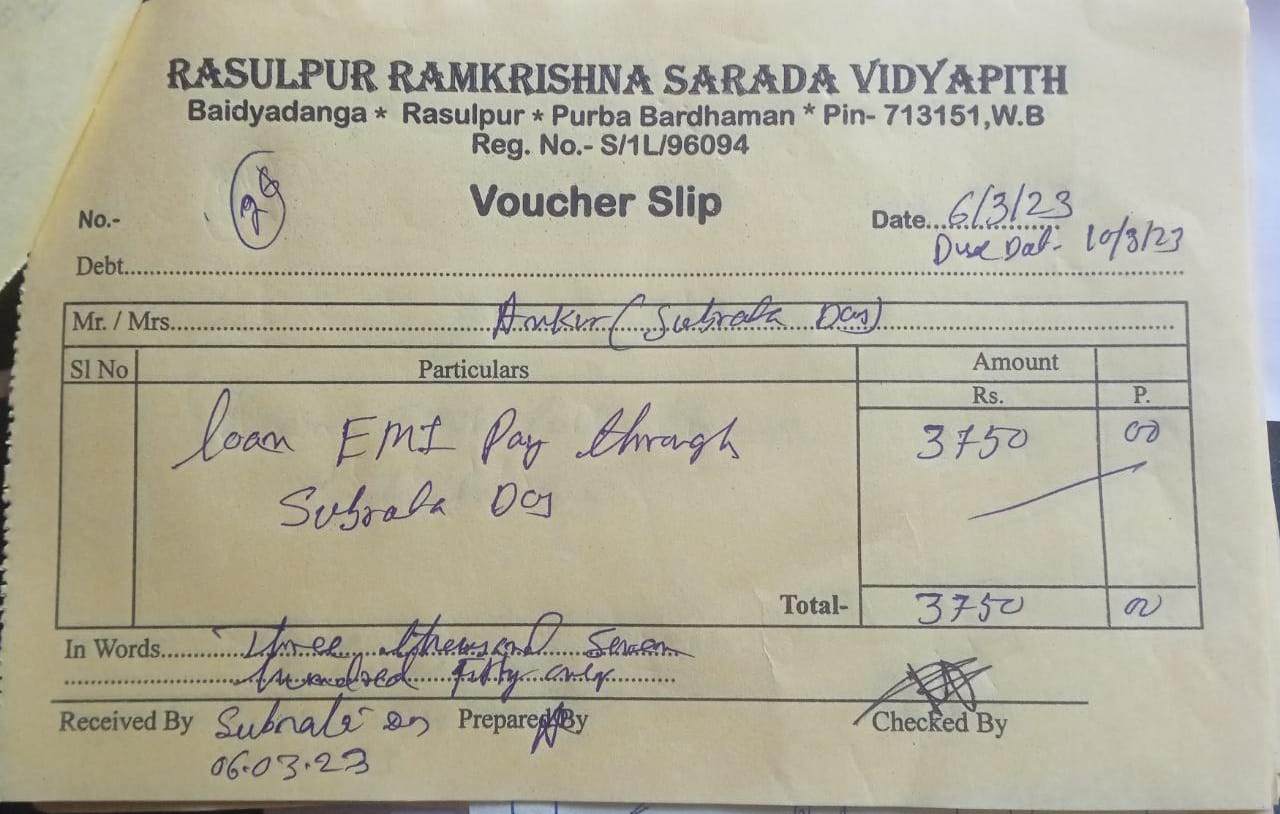 RASULPUR RAMKRISHNA SARADA VIDYAPITH
Baidyadanga * Rasulpur * Purba Bardhaman * Pin- 713151,W.B
Reg. No.- S/1L/96094
Voucher Slip
No.-
Date...6/3/23
Due Dat- 10/3/23
Debt
Mr. / Mrs. Ankur (Subrata Das)
Sl No Particulars Amount
Rs. P.
loan EMI Pay through 3750 00
Subrata Das
Total- 3750 00
In Words Three thousand Seven
hundred Fifty only
Received By Subrata Das Prepared By Checked By
06.03.23